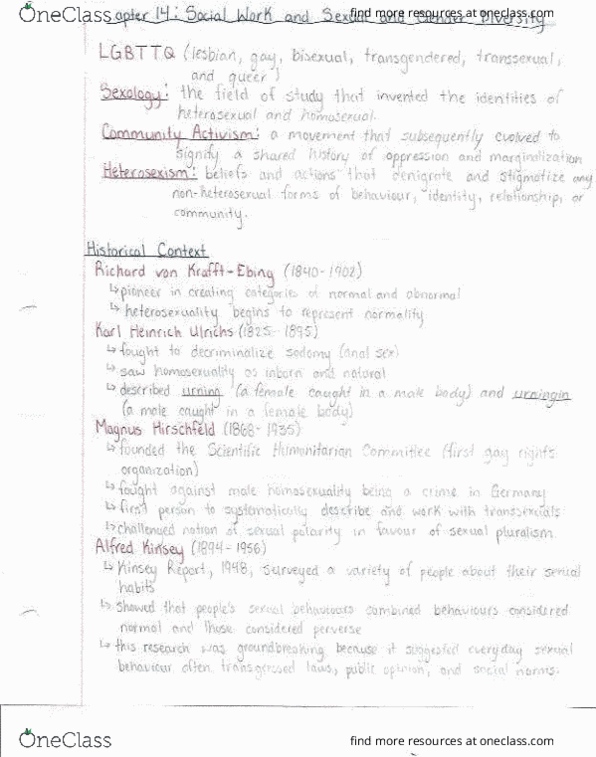 OneClass
find more resources at oneclass.com
apter 14: Social Work and Sexual and Gender Diversity
LGBTTQ (lesbian, gay, bisexual, transgendered, transsexual,
and queer)
Sexology: the field of study that invented the identities of
heterosexual and homosexual.
Community Activism: a movement that subsequently evolved to
signify a shared history of oppression and marginalization
Heterosexism: beliefs and actions that denigrate and stigmatize any
non-heterosexual forms of behaviour, identity, relationship, or
community.
Historical Context
Richard von Krafft-Ebing (1840-1902)
↳ pioneer in creating categories of normal and abnormal
↳ heterosexuality begins to represent normality
Karl Heinrich Ulrichs (1825-1895)
↳ fought to decriminalize sodomy (anal sex)
↳ saw homosexuality as inborn and natural
↳ described urning (a female caught in a male body) and urningin
(a male caught in a female body)
Magnus Hirschfeld (1868-1935)
↳ founded the Scientific Humanitarian Committee (first gay rights
organization)
↳ fought against male homosexuality being a crime in Germany
↳ first person to systematically describe and work with transsexuals
↳ challenged notion of sexual polarity in favour of sexual pluralism.
Alfred Kinsey (1894-1956)
↳ Kinsey Report, 1948, surveyed a variety of people about their sexual
habits
↳ showed that people's sexual behaviours combined behaviours considered
normal and those considered perverse
↳ this research was groundbreaking because it suggested everyday sexual
behaviour often transgressed laws, public opinion, and social norms.
OneClass
find more resources at oneclass.com